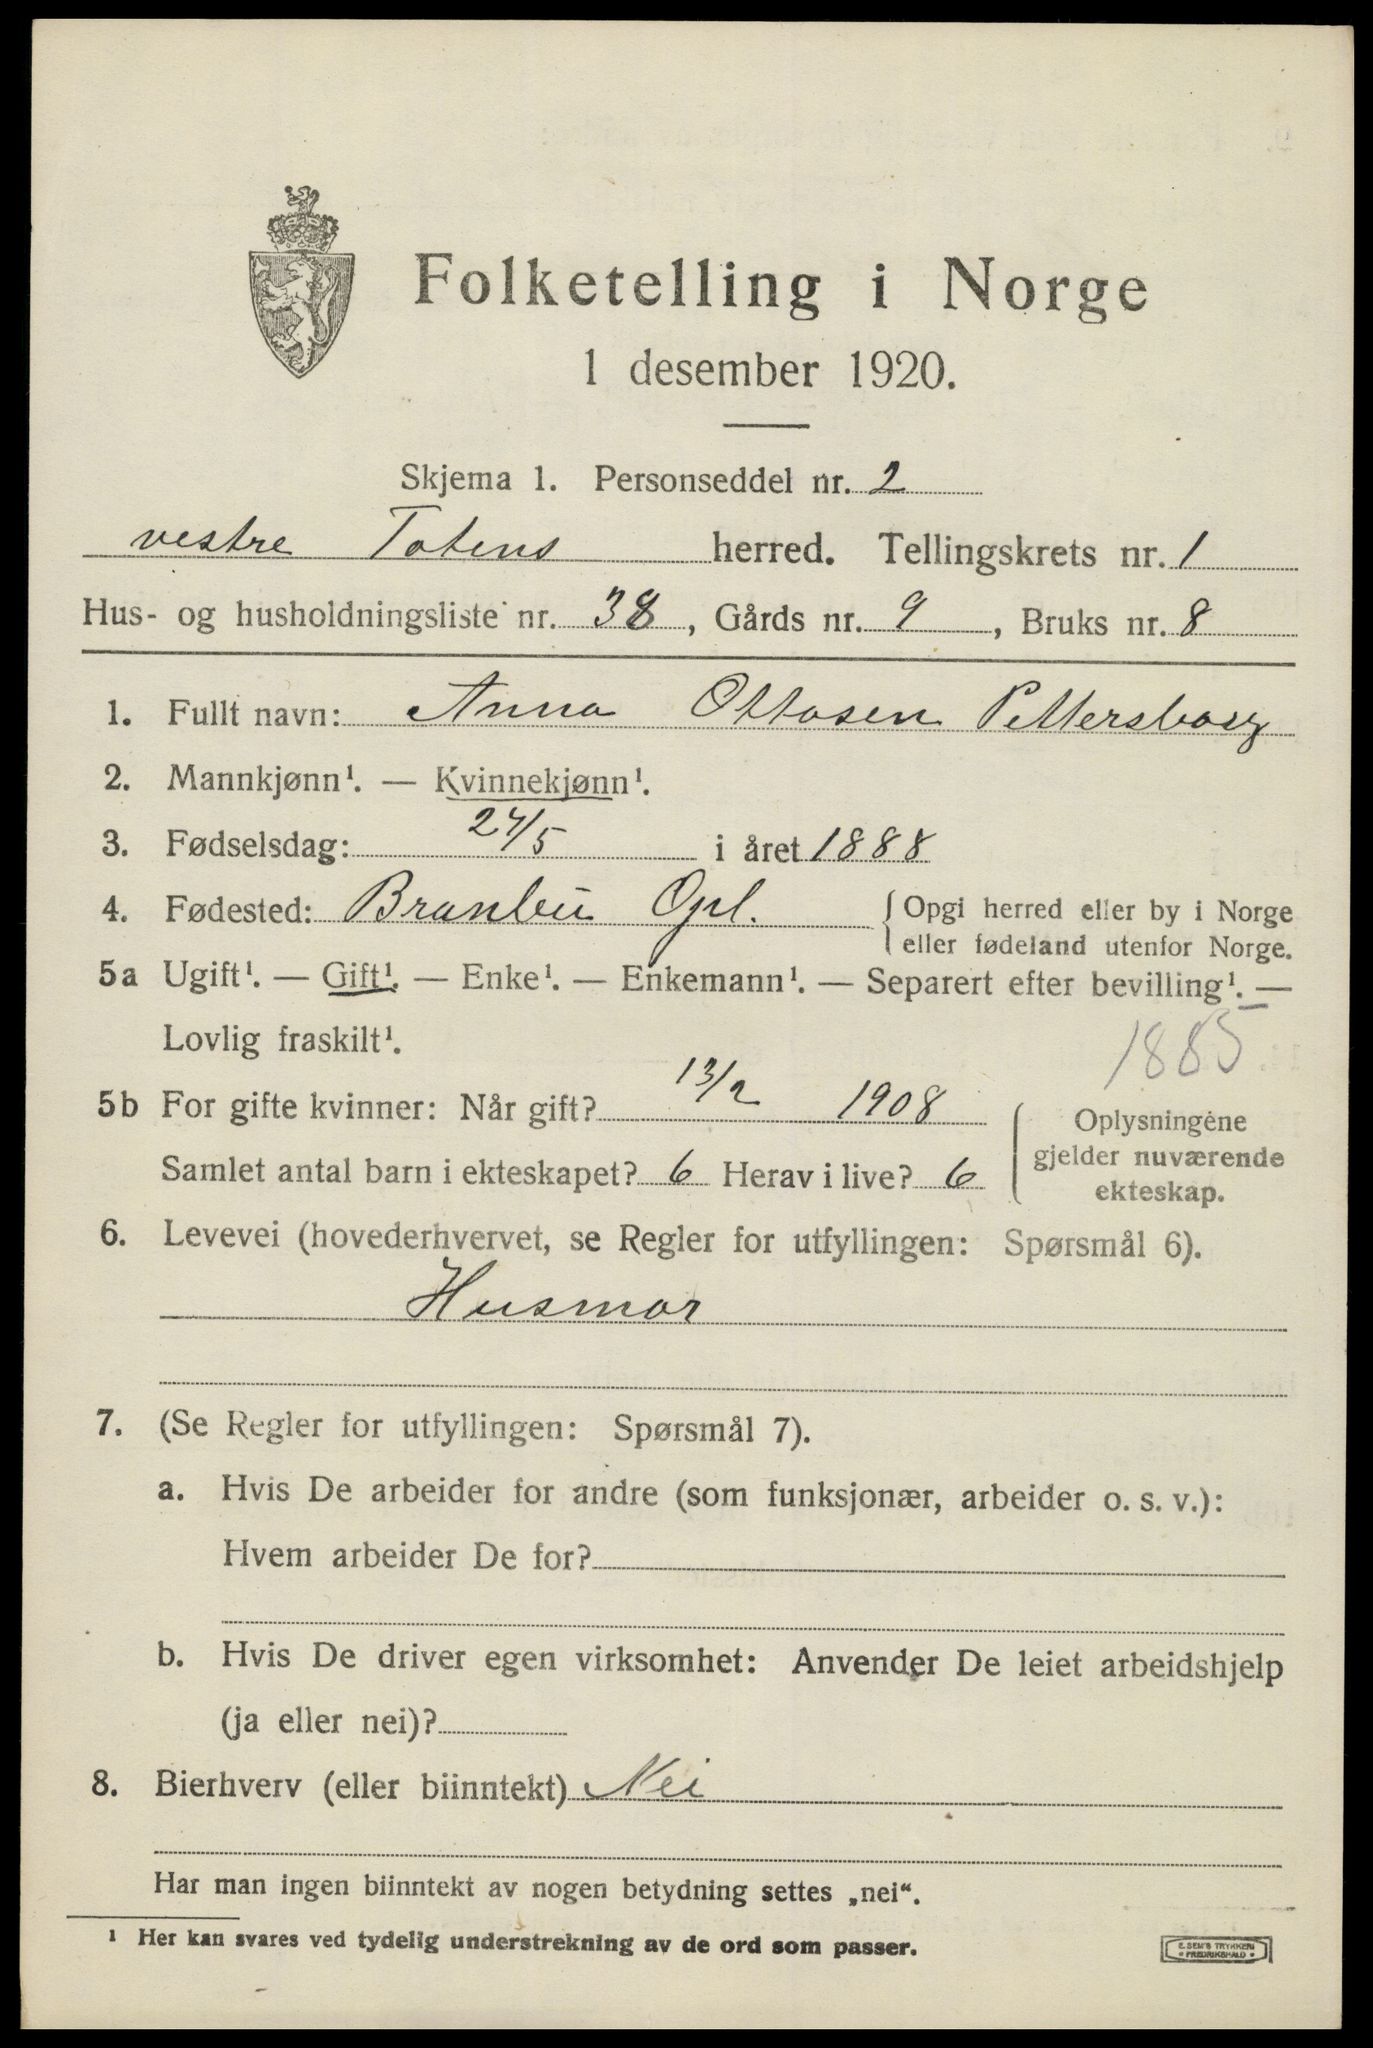 Folketelling i Norge
1 desember 1920.
Skjema 1. Personseddel nr. 2
vestre Totens herred. Tellingskrets nr. 1
Hus- og husholdningsliste nr. 38, Gårds nr. 9, Bruks nr. 8
1. Fullt navn: Anna Ottosen Pettersborg
2. Mannkjønn¹. — Kvinnekjønn¹.
3. Fødselsdag: 24/5 i året 1888
4. Fødested: Branbu Opl. { Opgi herred eller by i Norge
eller fødeland utenfor Norge.
5a Ugift¹. — Gift¹. — Enke¹. — Enkemann¹. — Separert efter bevilling¹. —
Lovlig fraskilt¹.
1885
5b For gifte kvinner: Når gift? 13/2 1908
Samlet antal barn i ekteskapet? 6 Herav i live? 6
Oplysningene
gjelder nuværende
ekteskap.
6. Levevei (hovederhvervet, se Regler for utfyllingen: Spørsmål 6).
Husmor
7. (Se Regler for utfyllingen: Spørsmål 7).
a. Hvis De arbeider for andre (som funksjonær, arbeider o. s. v.):
Hvem arbeider De for?
b. Hvis De driver egen virksomhet: Anvender De leiet arbeidshjelp
(ja eller nei)?
8. Bierhverv (eller biinntekt) Nei
Har man ingen biinntekt av nogen betydning settes „nei“.
¹ Her kan svares ved tydelig understrekning av de ord som passer.
E. SEM'S TRYKKERI
FREDRIKSHALD